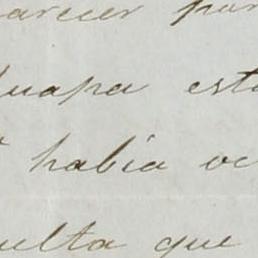 arecer por
uapa est
habia oc
ulta que